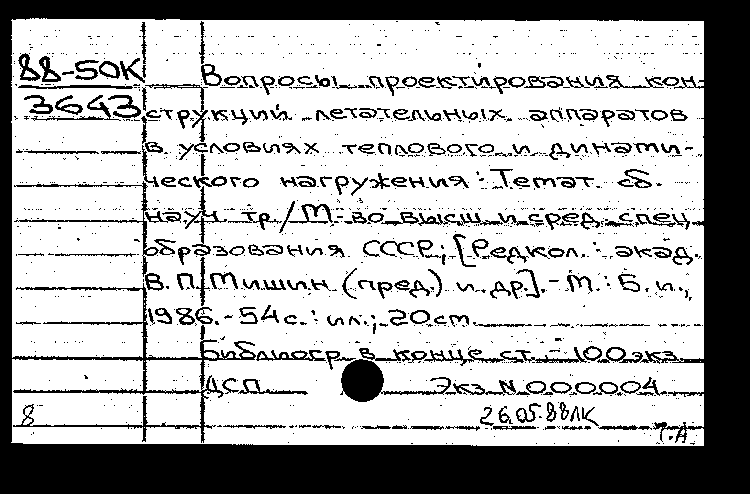 88-50К
3643
Вопросы проектирования кон-
струкций летательных аппаратов
в условиях теплового и динами-
ческого нагружения: Темат. сб.
науч. тр./М-во высш. и сред. спец.
образования СССР; [Редкол.: акад.
В. П. Мишин (пред.) и др.].- М.: Б. и.,
1986.- 54 с.: ил.; 20 см.
Библиогр. в конце ст. - 100 экз.
ДСП. Экз. N 000004
8 26.05.88 ЛК
Т.А